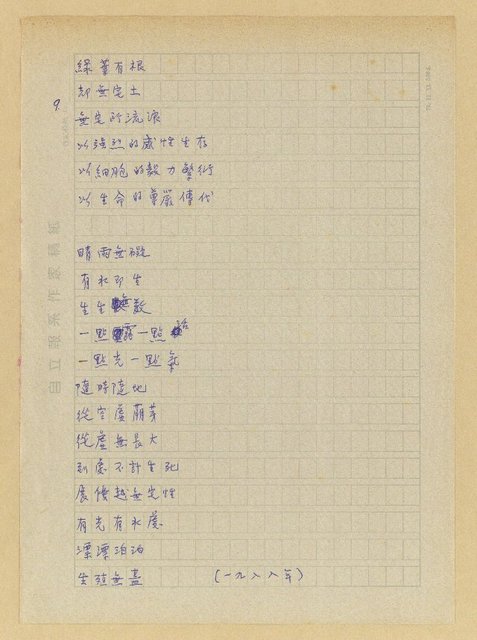 9.
綠葉有根
却無定土
無定所流浪
以強烈的感性生存
以細胞的毅力繁衍
以生命的尊嚴傳代
晴雨無礙
有水即生
生生無數
一點露一點活
一點光一點氣
隨時隨地
從空虛萌芽
從虛無長大
到處不計生死
展優越無定性
有光有水處
漂漂泊泊
生殖無盡
(一九八八年)
自立報系作家稿紙